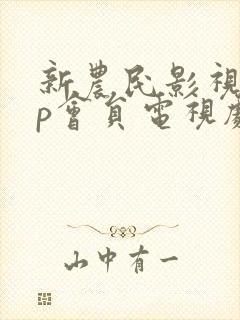 新農民影視
p會員電視劇
山中有一